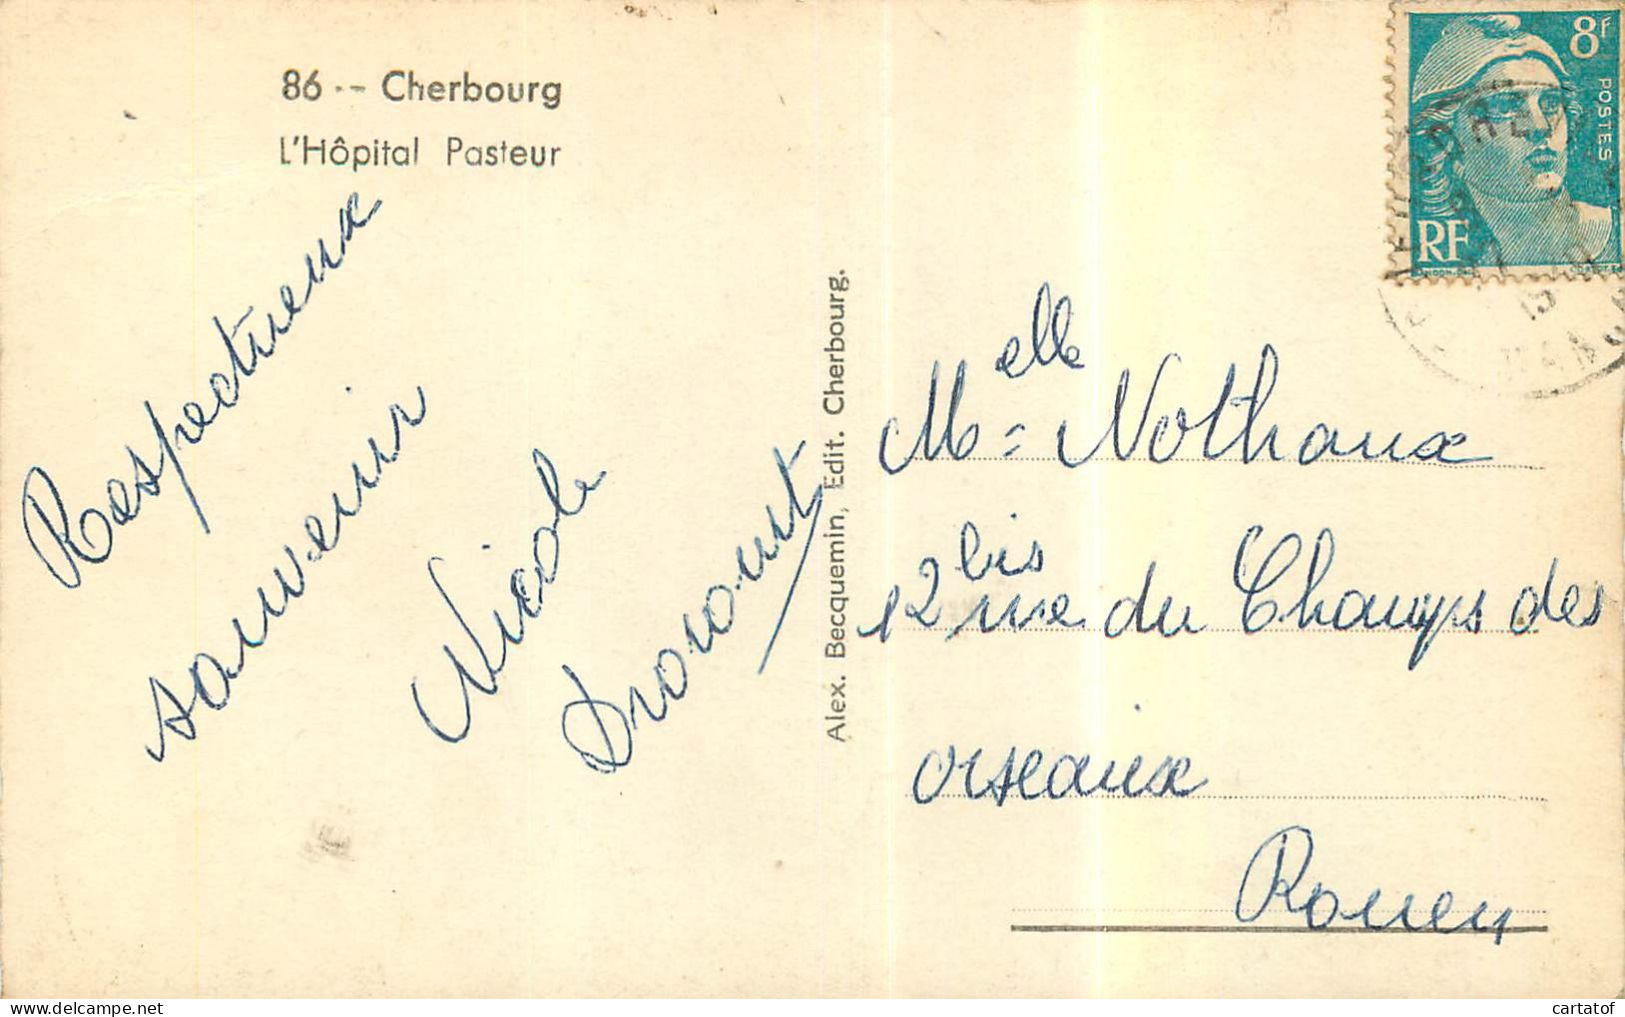 86 -- Cherbourg
L'Hôpital Pasteur
Respectueux
souvenir
Nicole
Drouout
Alex. Becquemin, Edit. Cherbourg.
8F
POSTES
RF
Melle Nothaux
12 bis rue du Champs des
oiseaux
Rouen
cartatof